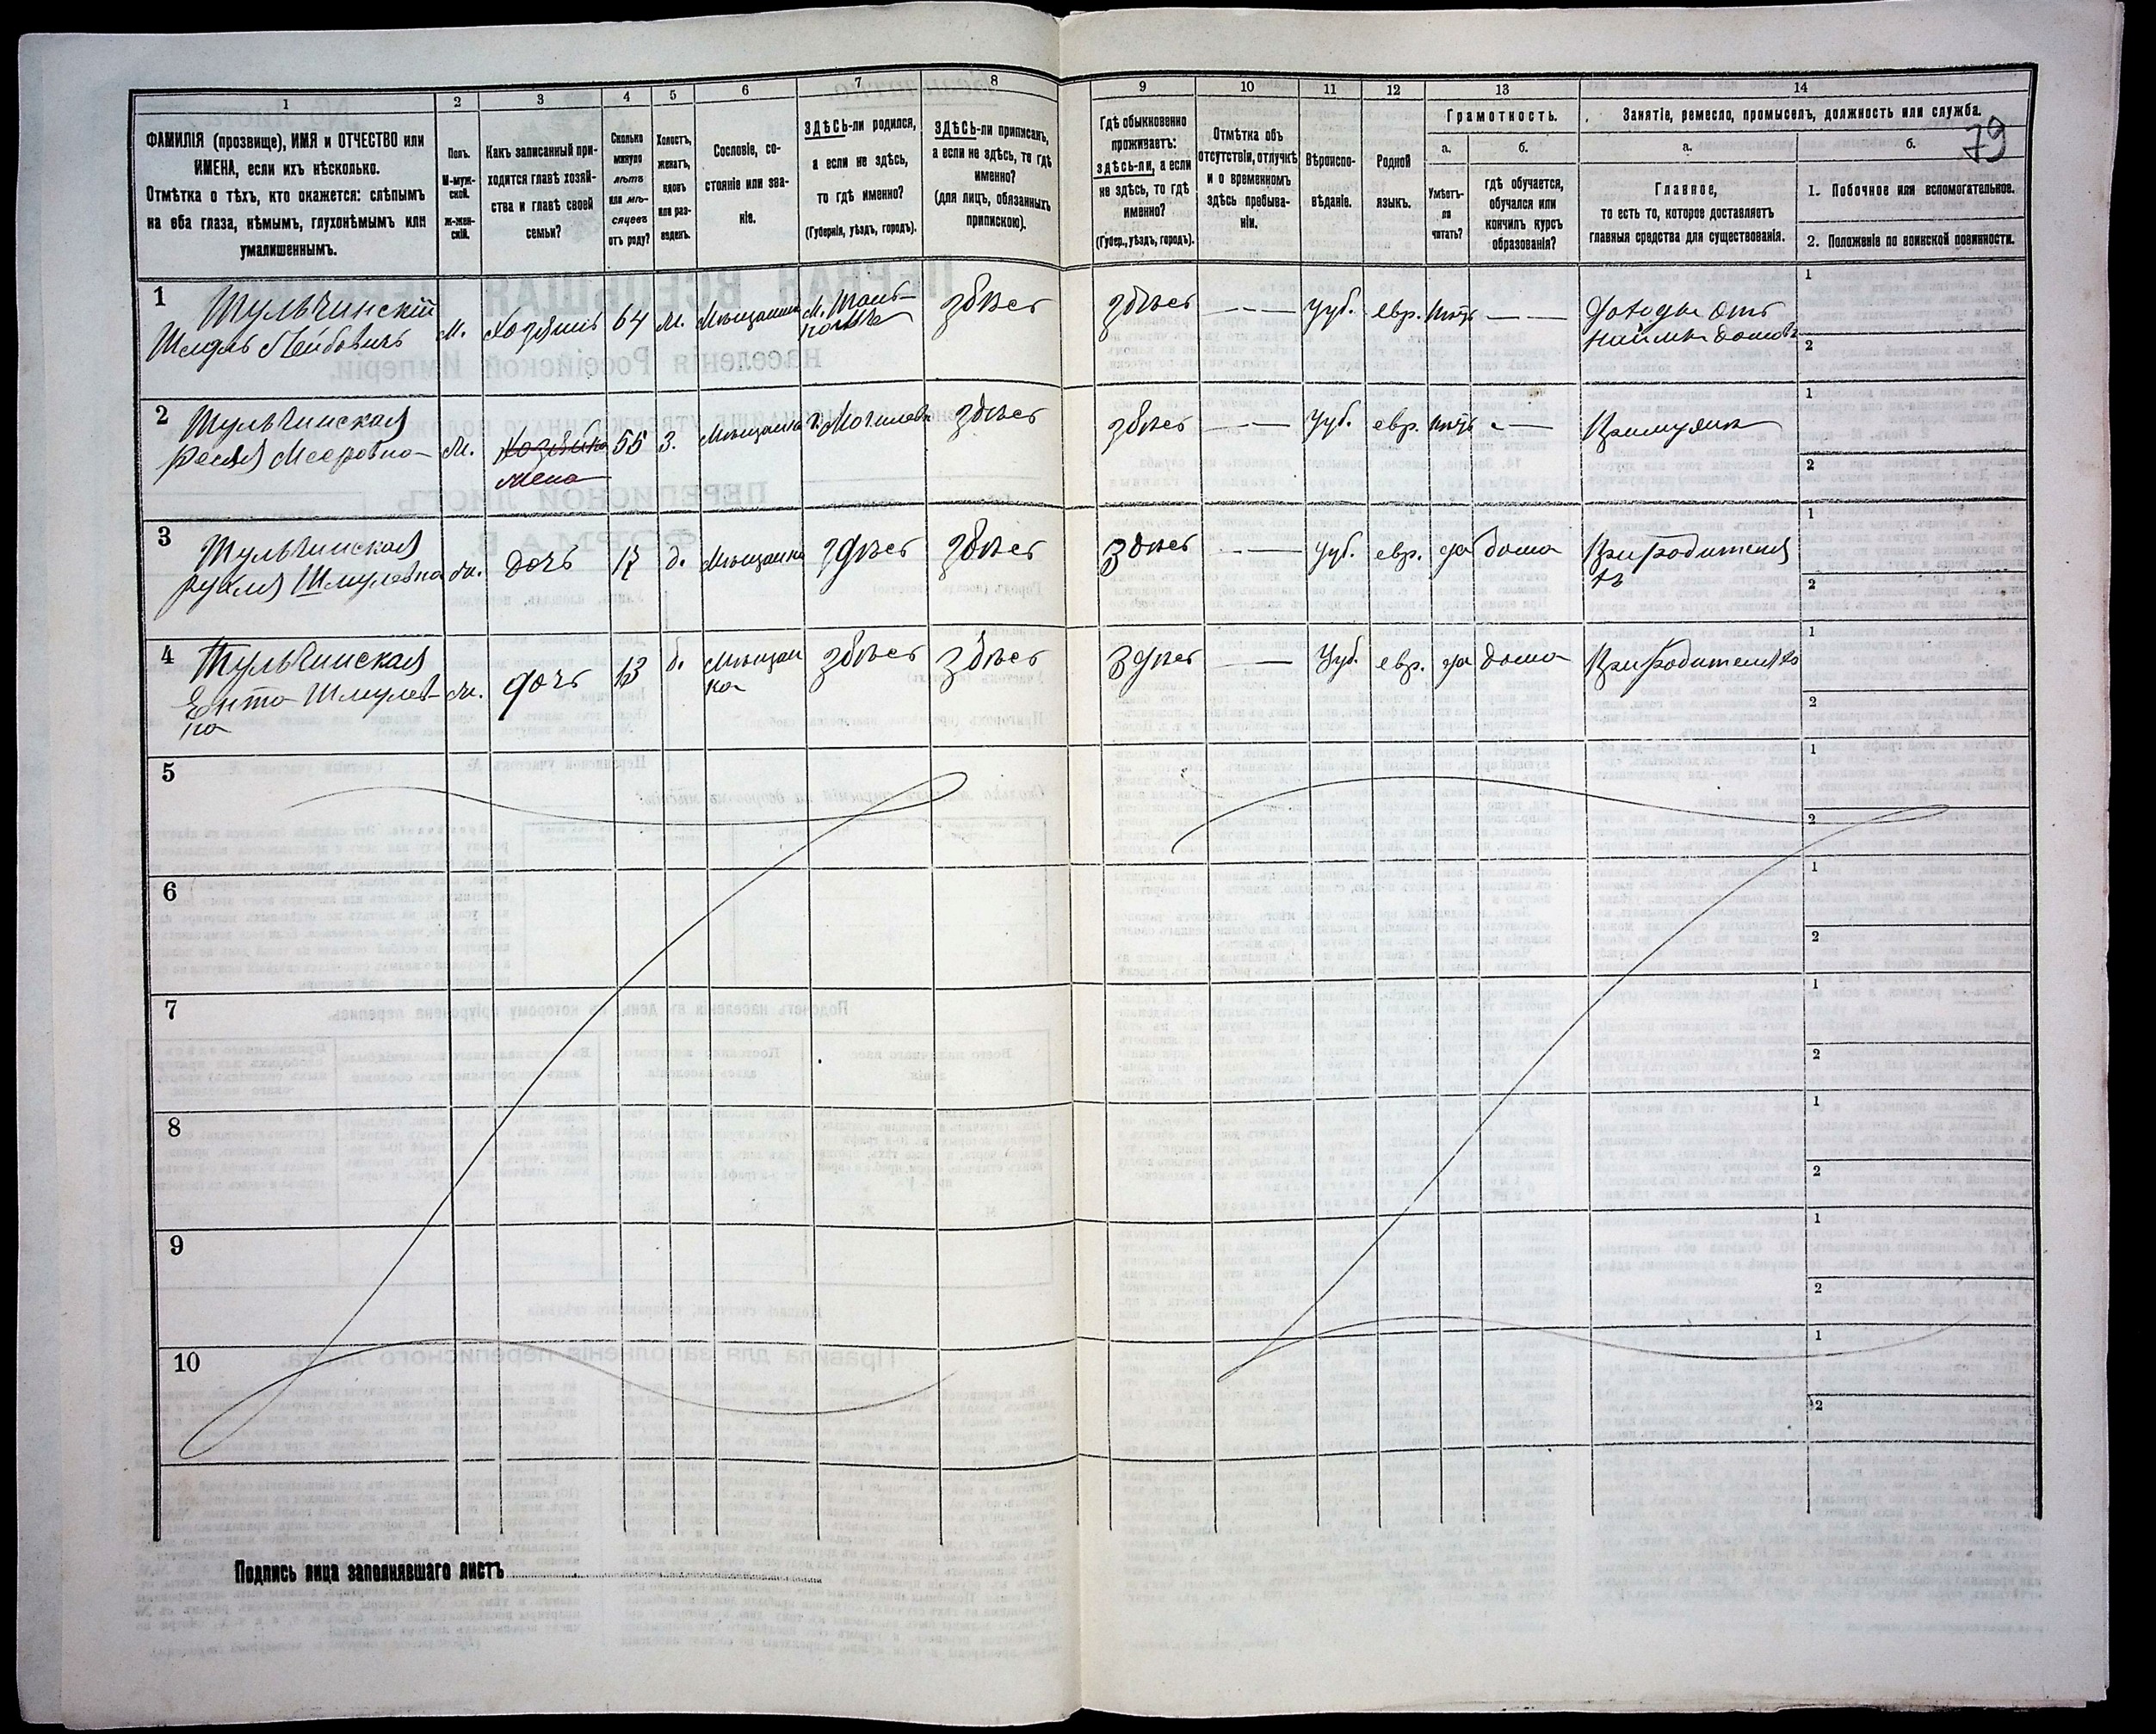 1 2 3 4 5 6 7 8 9 10 11 12 13 14
79
ФАМИЛІЯ (прозвище), ИМЯ и ОТЧЕСТВО или
ИМЕНА, если ихъ нѣсколько.
Отмѣтка о тѣхъ, кто окажется: слѣпымъ
на оба глаза, нѣмымъ, глухонѣмымъ или
умалишеннымъ.
Полъ.
М-муж-
ской.
Ж-жен-
скій.
Какъ записанный при-
ходится главѣ хозяй-
ства и главѣ своей
семьи?
Сколько
минуло
лѣтъ
или мѣ-
сяцевъ
отъ роду?
Холостъ,
женатъ,
вдовъ
или раз-
веденъ.
Сословіе, со-
стояніе или зва-
ніе.
ЗДѢСЬ-ли родился,
а если не здѣсь,
то гдѣ именно?
(Губернія, уѣздъ, городъ).
ЗДѢСЬ-ли приписанъ,
а если не здѣсь, то гдѣ
именно?
(для лицъ, обязанныхъ
припискою).
Гдѣ обыкновенно
проживаетъ:
здѣсь-ли, а если
не здѣсь, то гдѣ
именно?
(Губер., уѣздъ, городъ).
Отмѣтка объ
отсутствіи, отлучкѣ
и о временномъ
здѣсь пребыва-
ніи.
Вѣроиспо-
вѣданіе.
Родной
языкъ.
Грамотность.
а.
Умѣетъ-
ли
читать?
б.
Гдѣ обучается,
обучался или
кончилъ курсъ
образованія?
Занятіе, ремесло, промыселъ, должность или служба.
а.
Главное,
то есть то, которое доставляетъ
главныя средства для существованія.
б.
1. Побочное или вспомогательное.
2. Положеніе по воинской повинности.
1 Тульчинскій
Лейбовичъ
м. Хозяинъ 64 Мѣщанинъ
здѣсь здѣсь — — Іуд. евр. — —
Доходы отъ
найма домовъ
1
2
2 Тульчинская
Мееровна
Хозяйка
жена
55 з. Мѣщанка г. Могилевъ здѣсь здѣсь — — Іуд. евр. —
При мужѣ
1
2
3 Тульчинская
Рухля Шмулевна
ж. дочь 17 д. Мѣщанка здѣсь здѣсь здѣсь — — Іуд. евр. да дома
При родителя
хъ
1
2
4 Тульчинская
Ента Шмулев
на
ж. дочь 13 д. Мѣщан
ка
здѣсь здѣсь здѣсь — — Іуд. евр. да дома При родителяхъ
1
2
5
1
2
6
1
2
7
1
2
8
1
2
9
1
2
10
1
2
Подпись лица заполнявшаго листъ